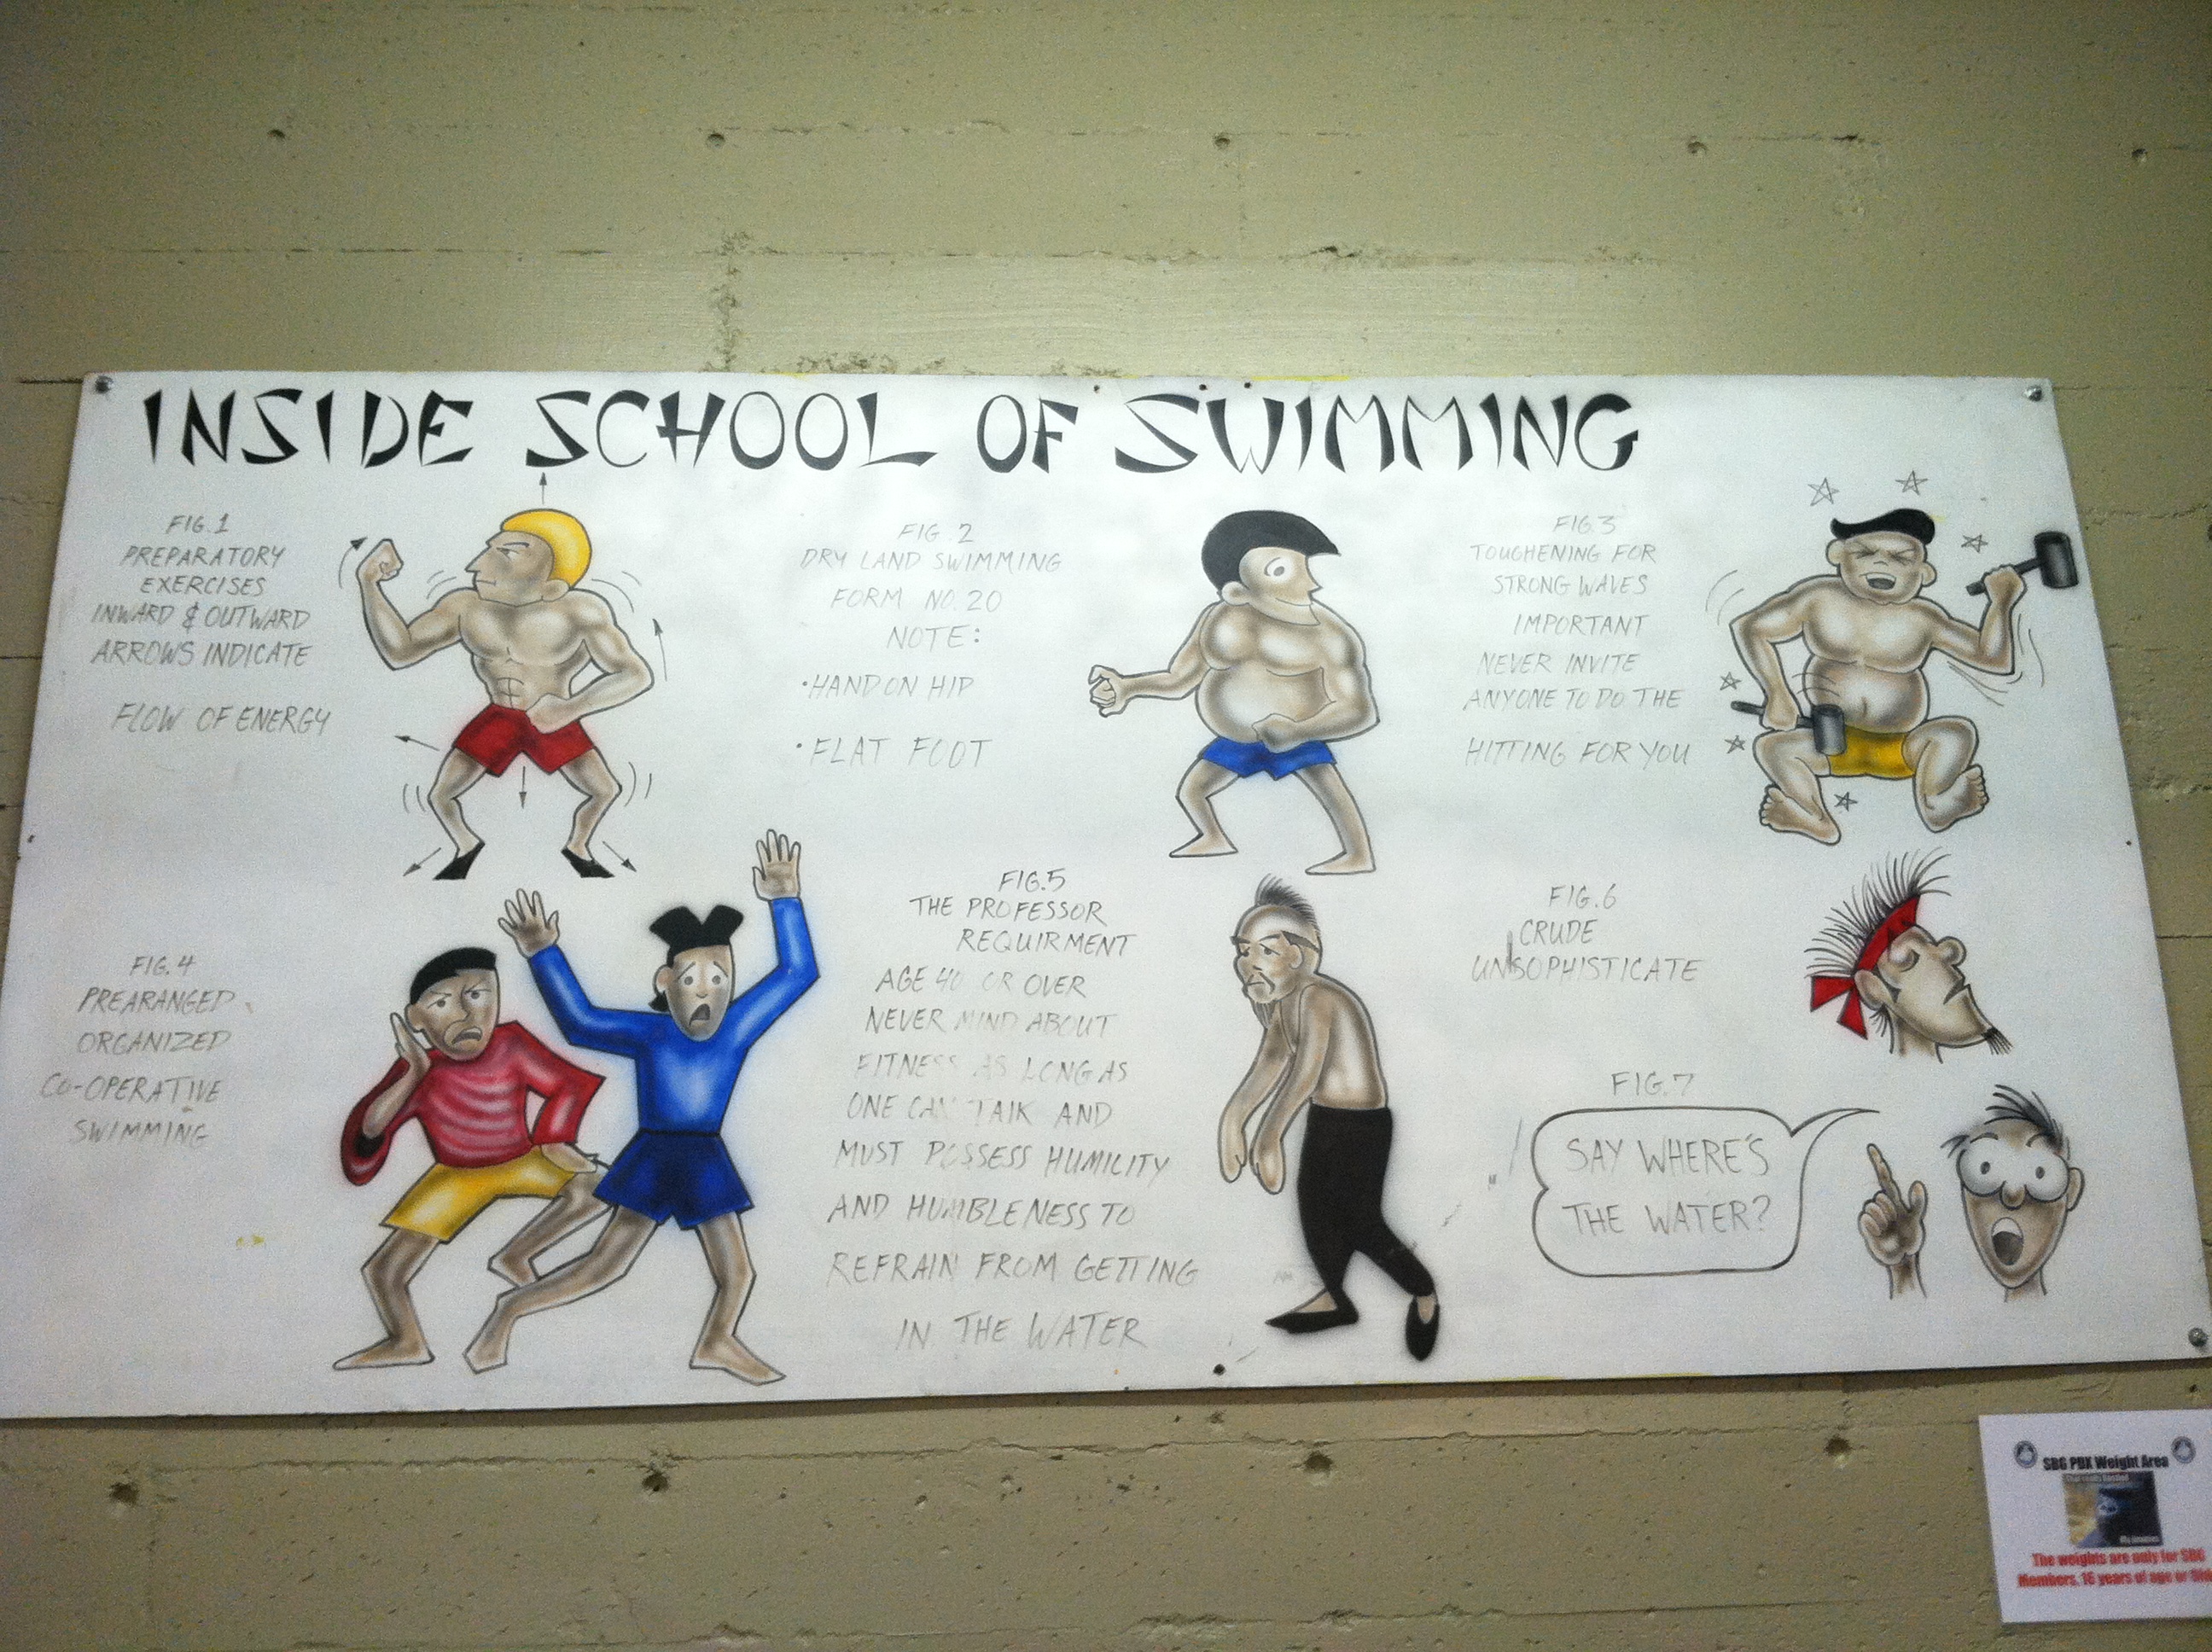 INSIDE SCHOOL OF SWIMMING
FIG.1
PREPARATORY
EXERCISES
INWARD & OUTWARD
ARROWS INDICATE
FLOW OF ENERGY
FIG 2
DRY LAND SWIMMING
FORM NO. 20
NOTE:
•HAND ON HIP
•FLAT FOOT
FIG.3
TOUGHENING FOR
STRONG WAVES
IMPORTANT
NEVER INVITE
ANYONE TO DO THE
HITTING FOR YOU
FIG. 4
PREARANGED
ORGANIZED
CO-OPERATIVE
SWIMMING
FIG.5
THE PROFESSOR
REQUIRMENT
AGE 40 OR OVER
NEVER MIND ABOUT
FITNESS AS LONG AS
ONE CAN TALK AND
MUST POSSESS HUMILITY
AND HUMBLENESS TO
REFRAIN FROM GETTING
IN THE WATER
FIG.6
CRUDE
UNSOPHISTICATE
FIG.7
SAY WHERE'S
THE WATER?
SBG PDX Weight Area
The weights are only for SBG
Members. 16 years of age or